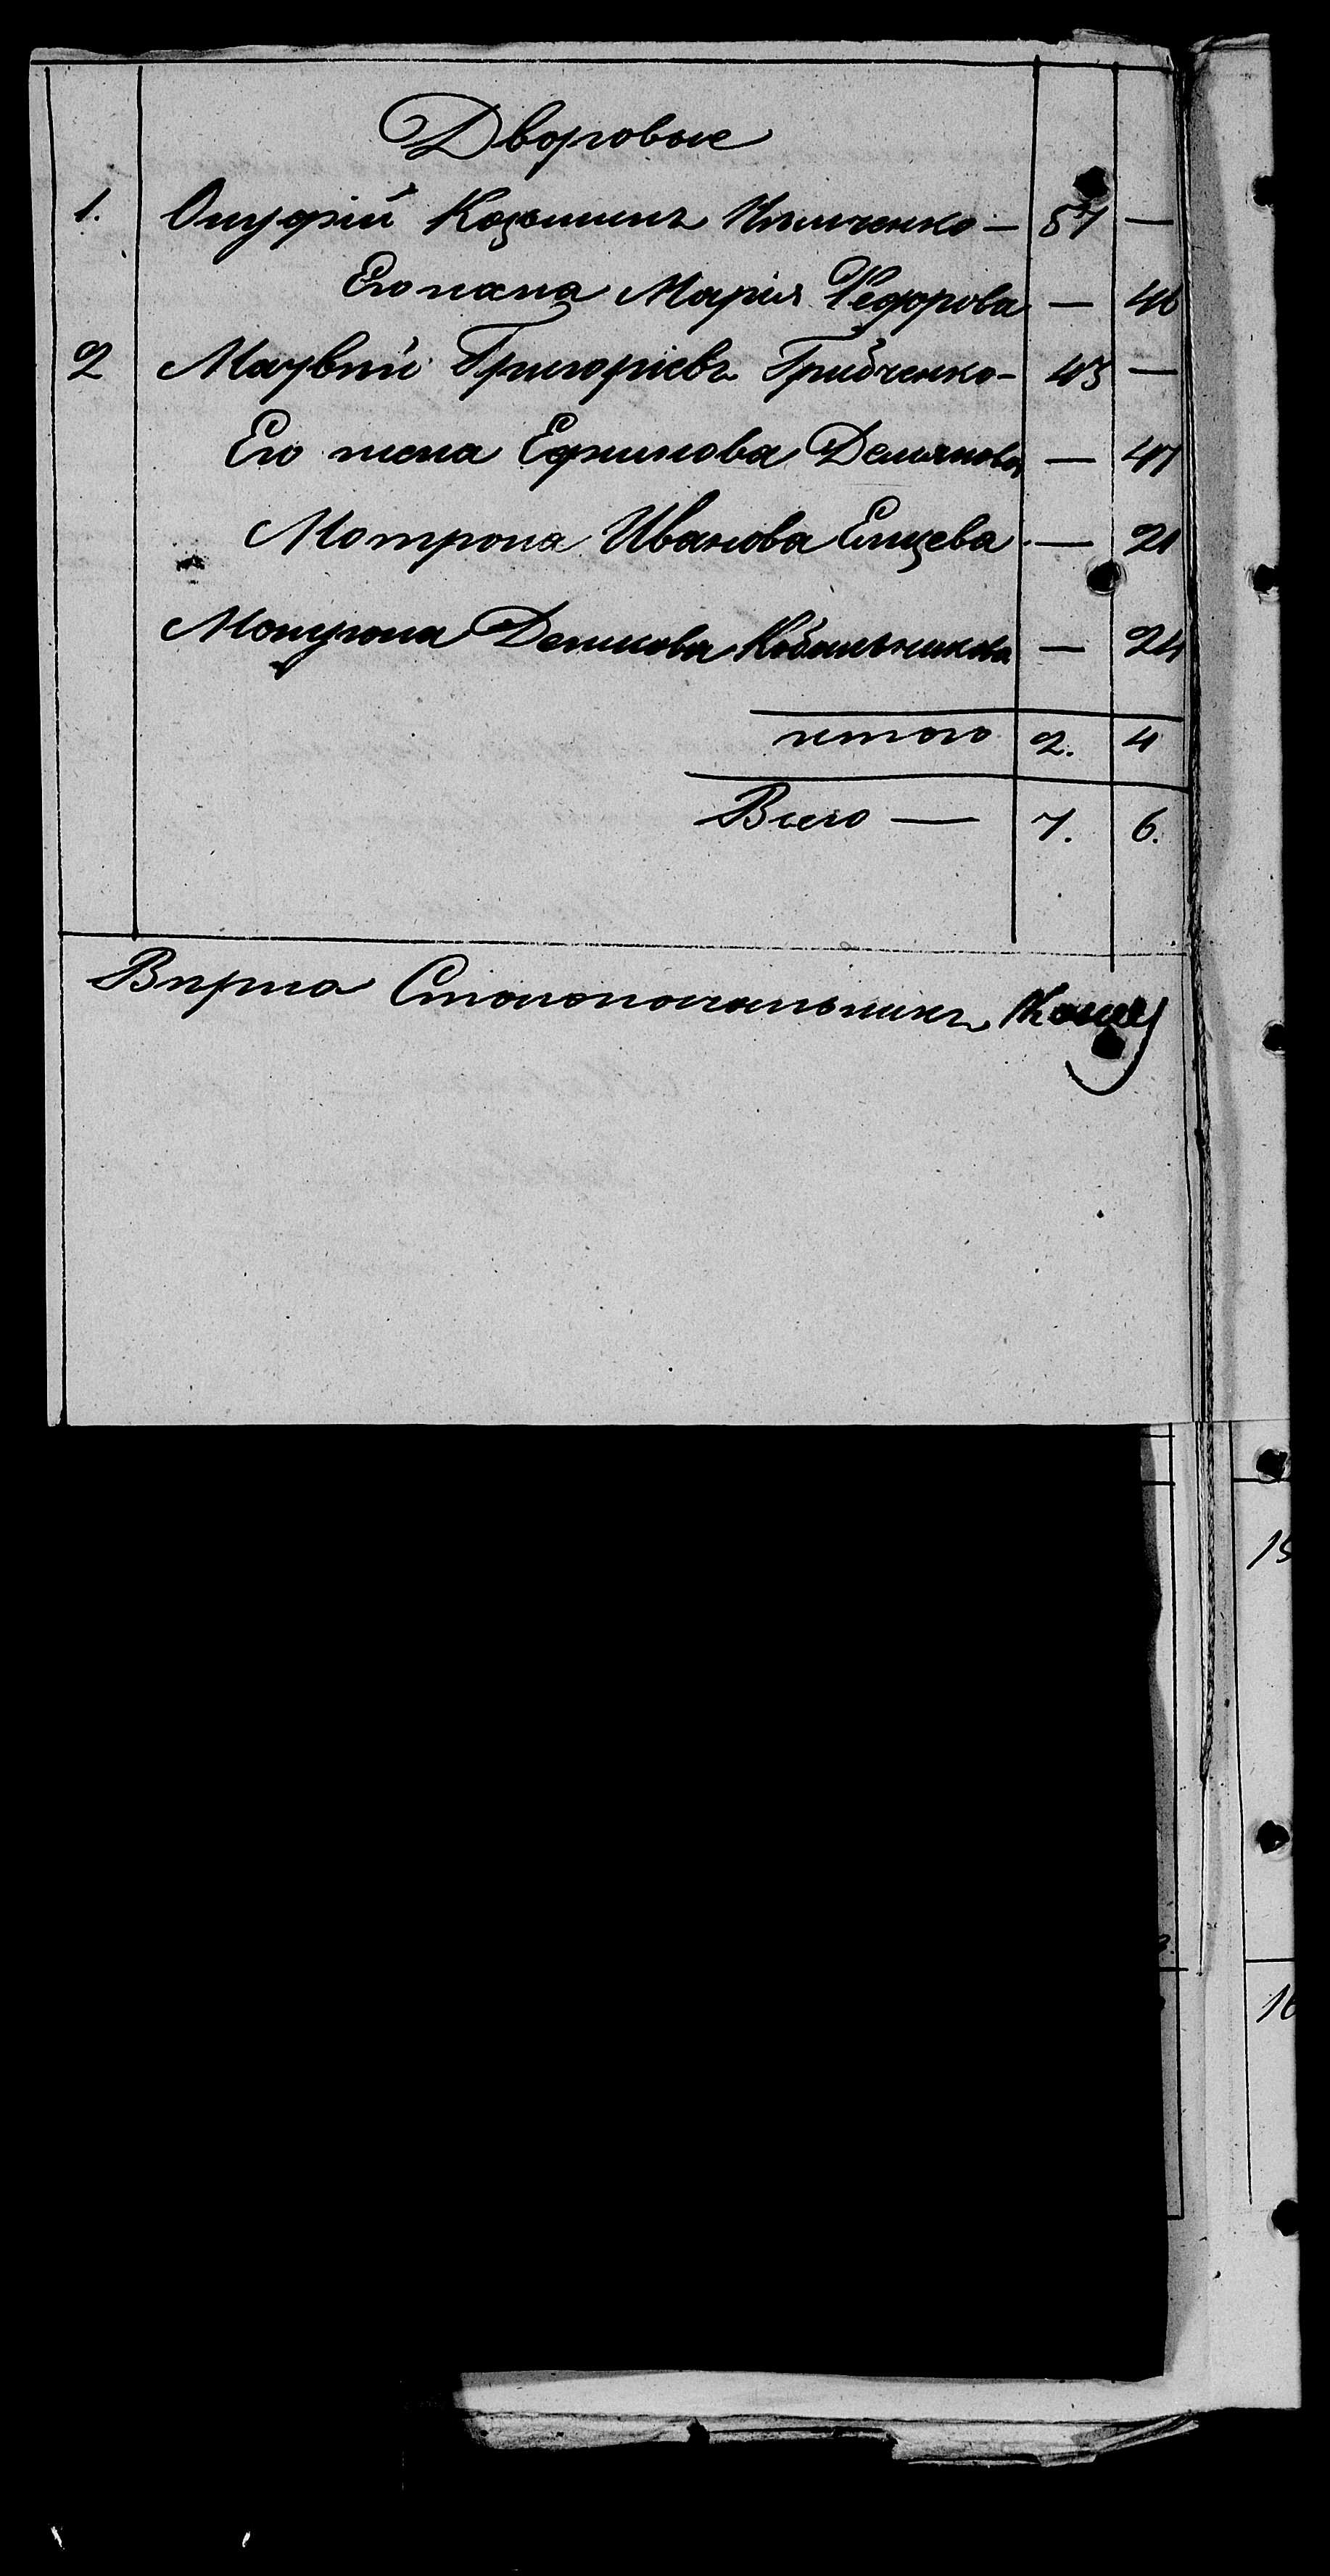 Дворовые
1. Онуфрій Козьминъ Ильченко — 57 —
Его жена Марія Федорова — 46
2 Матвѣй Григорьевъ Грибченко - 43 —
Его жена Ефимова Демянова — 47
Матрона Иванова Елцева — 21
Матрона Денисова — 24
итого 2. 4
Всего — 7. 6.
Вѣрна Столоначальникъ
15
16